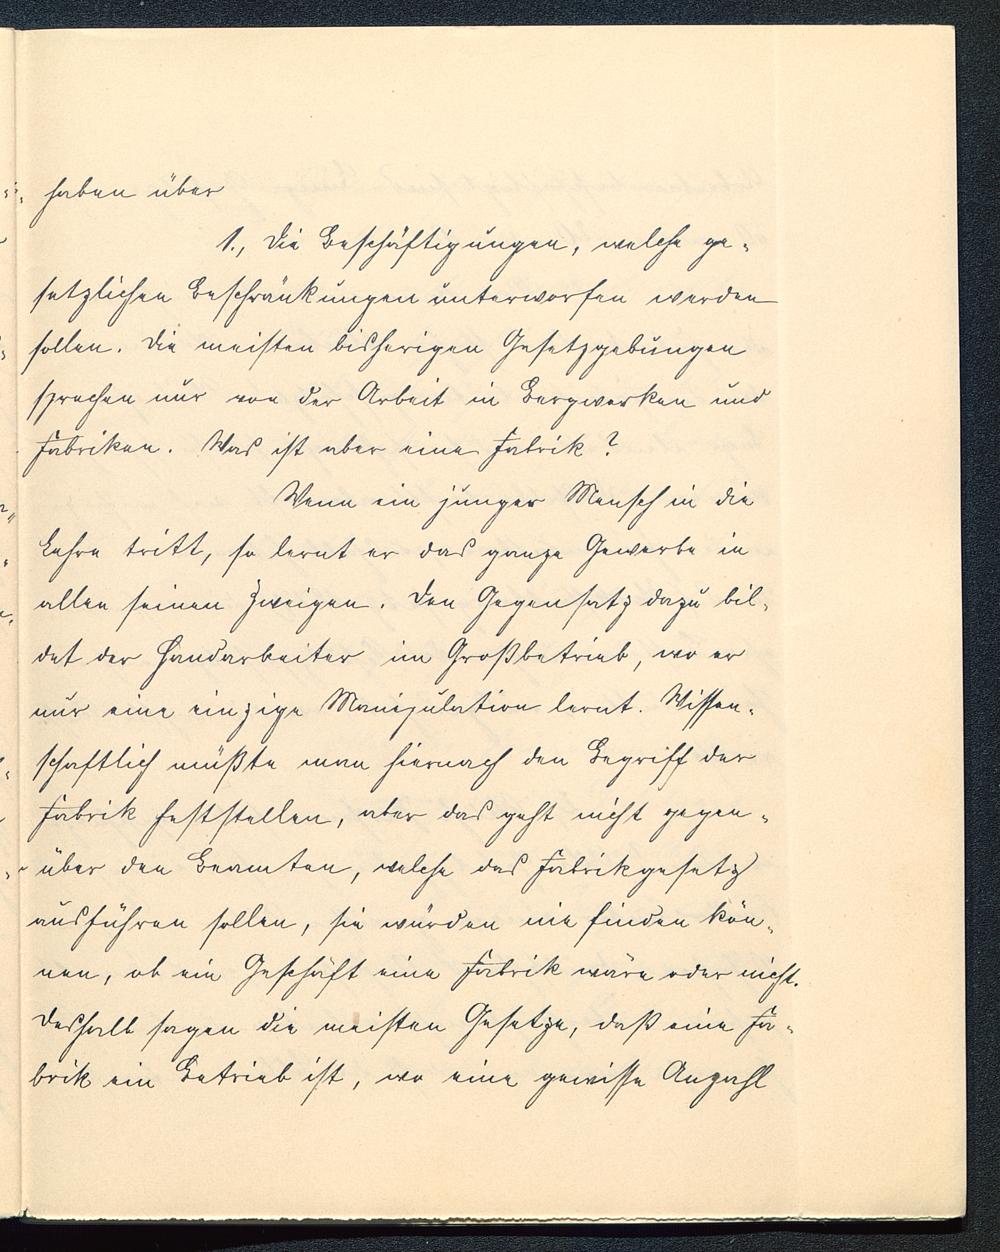 haben über
1., Die Beschäftigungen, welche ge-
setzlichen Beschränkungen unterworfen werden
sollen. Die meisten bisherigen Gesetzgebungen
sprechen nur von der Arbeit in Bergwerken und
Fabriken. Was ist aber eine Fabrik?
Wenn ein junger Mensch in die
Lehre tritt, so lernt er das ganze Gewerbe in
allen seinen Zweigen. Den Gegensatz dazu bil-
det der Handarbeiter im Großbetrieb, wo er
nur eine einzige Manipulation lernt. Wissen-
schaftlich müßte man hiernach den Begriff der
Fabrik feststellen, aber das geht nicht gegen-
über den Beamten, welche das Fabrikgesetz
ausführen sollen, sie würden nie finden kön-
nen, ob ein Geschäft eine Fabrik wäre oder nicht.
Deshalb sagen die meisten Gesetze, daß eine Fa-
brik ein Betrieb ist, wo eine gewisse Anzahl